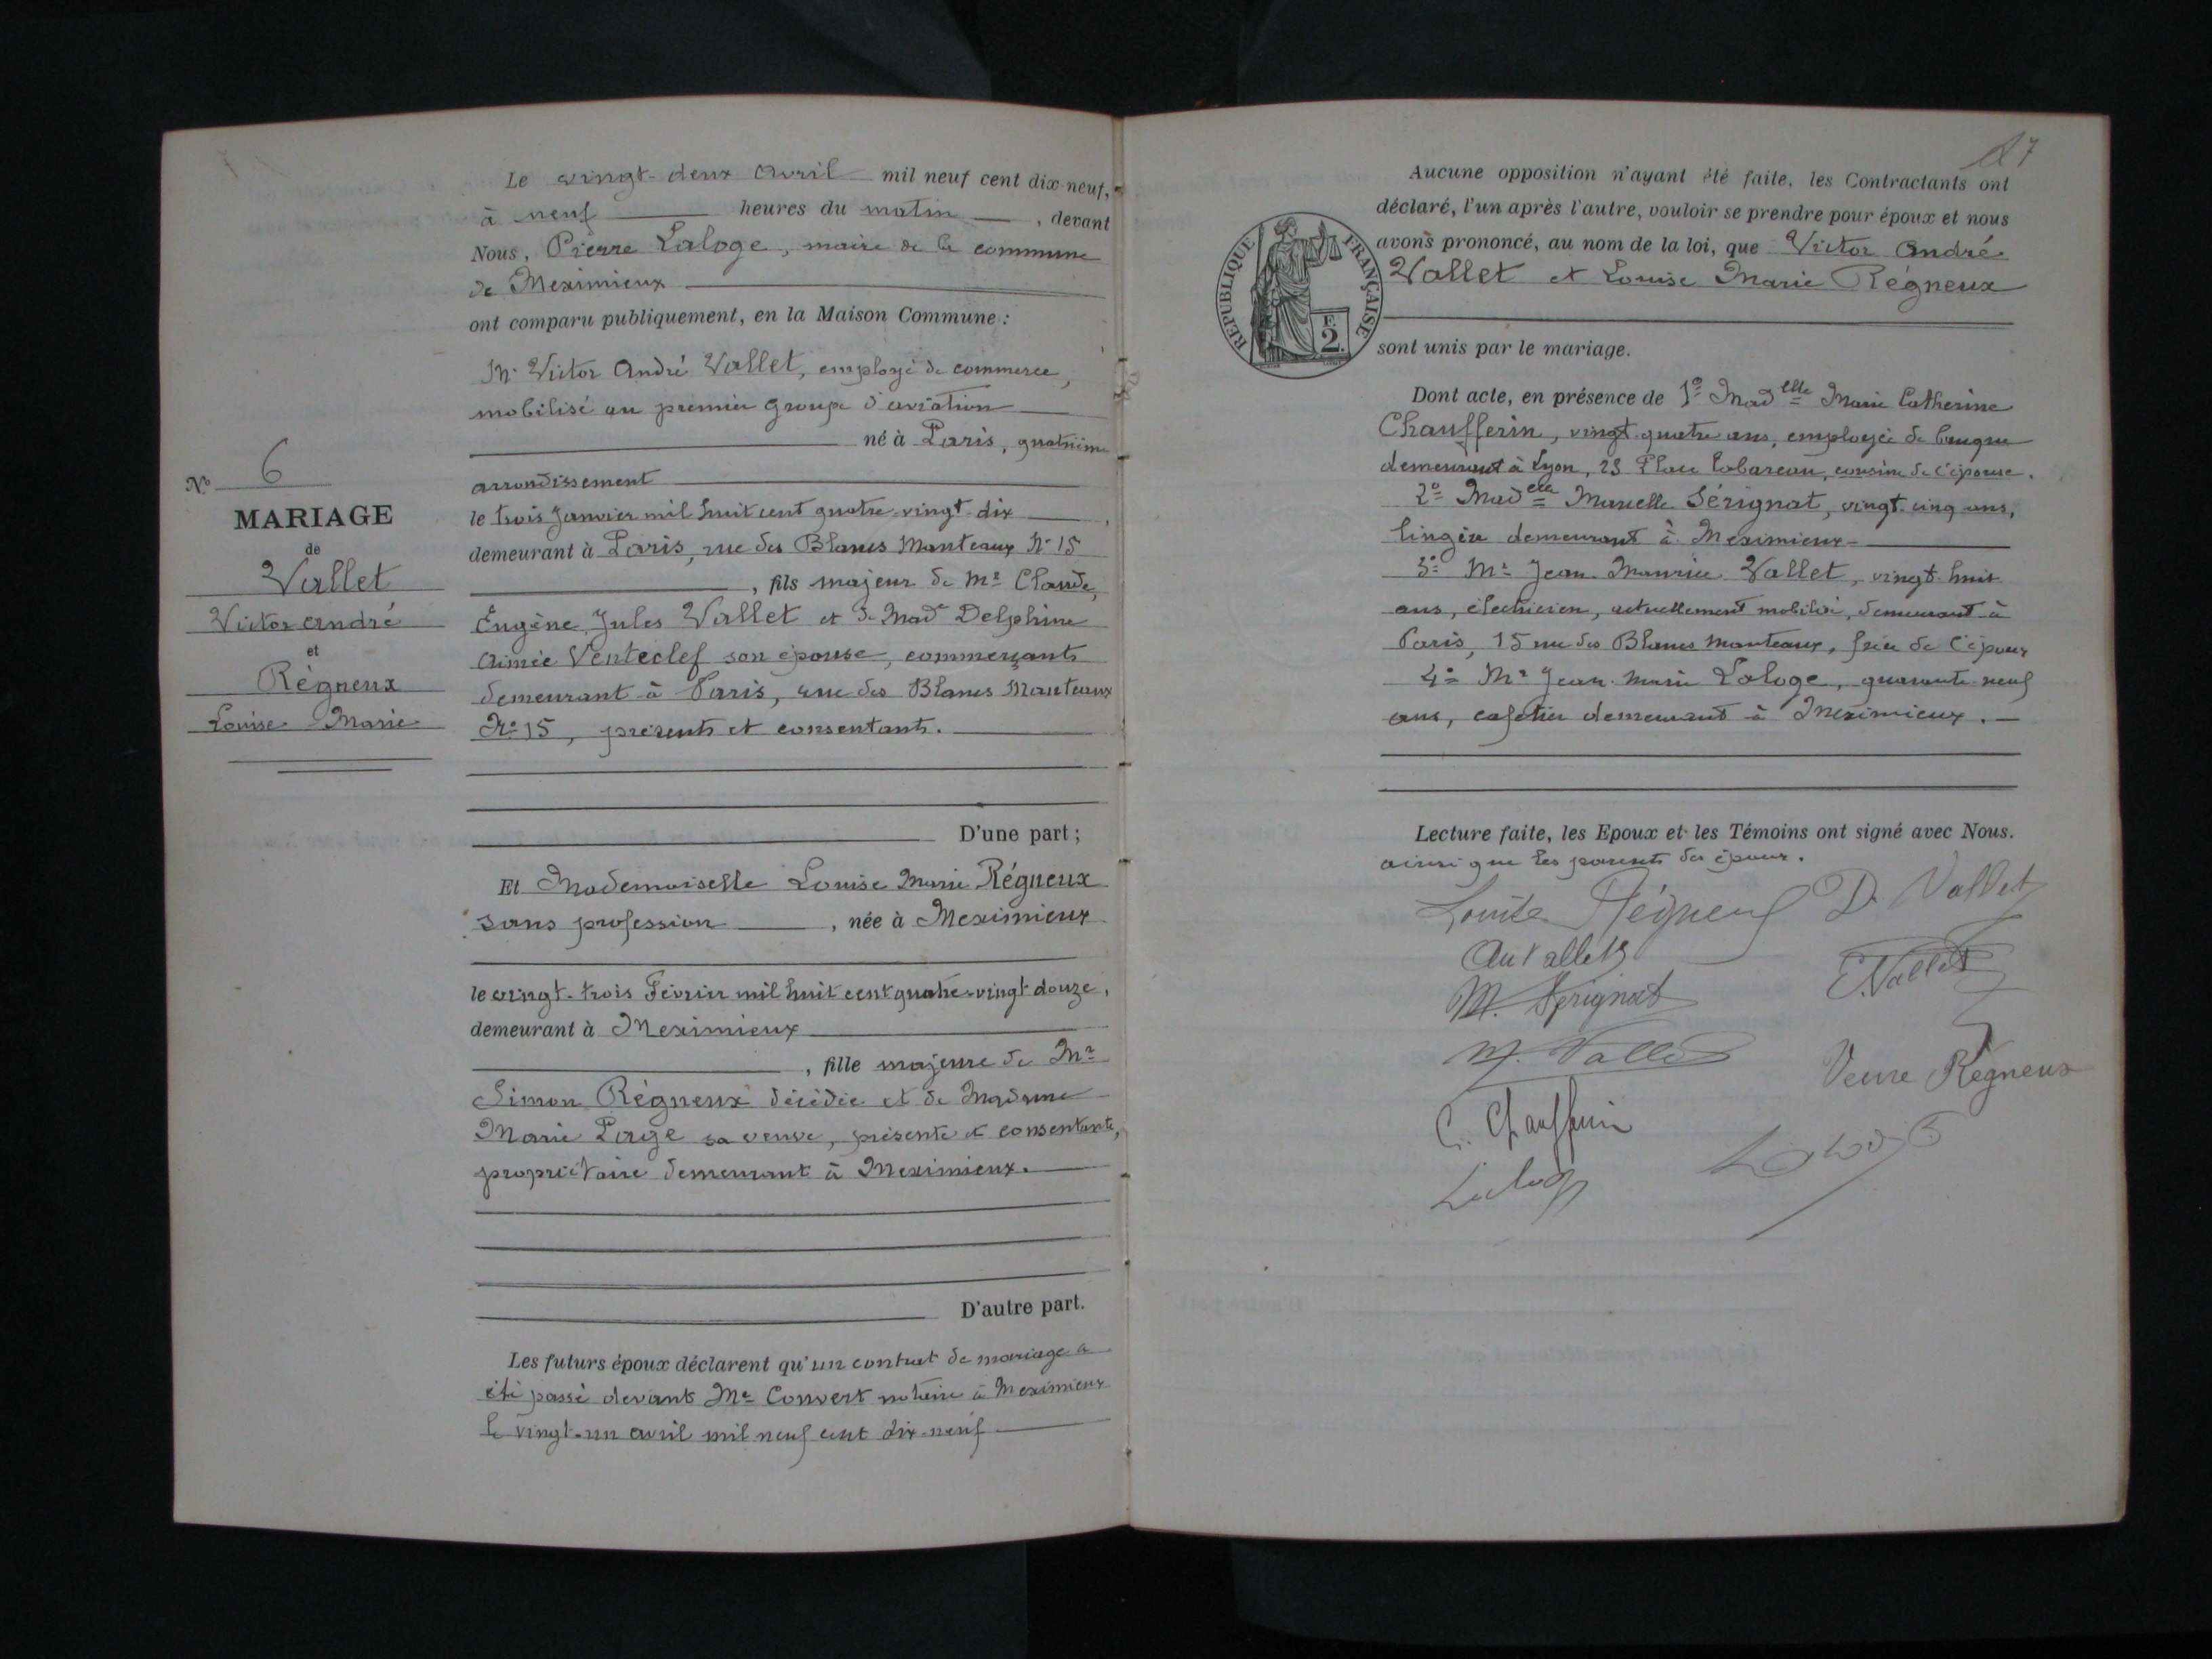 Le vingt-deux avril mil neuf cent dix-neuf,
à neuf heures du matin, devant
Nous, Pierre Laloge, maire de la commune
de Meximieux
ont comparu publiquement, en la Maison Commune :
Mr Victor André Vallet, employé de commerce,
mobilisé au premier groupe d'aviation
né à Paris, quatrième
arrondissement
le trois Janvier mil huit cent quatre-vingt-dix
demeurant à Paris, rue des Blancs Manteaux No 15
, fils majeur de Mr Claude,
Eugène Jules Vallet et de Made Delphine
Aimée Venteclef son épouse, commerçants
demeurant à Paris, rue des Blancs Manteaux
No 15, présents et consentants.
D'une part ;
Et Mademoiselle Louise Marie Régneux
sans profession, née à Meximieux
le vingt-trois Février mil huit cent quatre-vingt douze,
demeurant à Meximieux
, fille majeure de Mr
Simon Régneux décédée et de Madame
Marie Page sa veuve, présente et consentante,
propriétaire demeurant à Meximieux.
D'autre part.
Les futurs époux déclarent qu'un contrat de mariage a
été passé devant Me Convert notaire à Meximieux
le vingt-un avril mil neuf cent dix-neuf
No 6
MARIAGE
de
Vallet
Victor André
et
Régneux
Louise Marie
27
Aucune opposition n'ayant été faite, les Contractants ont
déclaré, l'un après l'autre, vouloir se prendre pour époux et nous
avons prononcé, au nom de la loi, que Victor André
Vallet et Louise Marie Régneux
REPUBLIQUE FRANÇAISE
F. 2
sont unis par le mariage.
Dont acte, en présence de 1o Madelle Marie Catherine
Chaufferin, vingt-quatre ans, employée de banque
demeurant à Lyon, 23 Place Tabareau, cousine de l'épouse.
2o Madelle Marcelle Sérignat, vingt-cinq ans,
lingère demeurant à Meximieux
3o Mr Jean Maurice Vallet, vingt-huit
ans, électricien, actuellement mobilisé, demeurant à
Paris, 15 rue des Blancs Manteaux, frère de l'époux
4o Mr Jean-Marie Laloge, quarante-neuf
ans, cafetier demeurant à Meximieux.
Lecture faite, les Epoux et les Témoins ont signé avec Nous.
ainsi que les parents des époux.
Louise Régneux D. Vallet
Vallet
M. Sérignat
C. Vallet
M. Vallet
Veuve Régneux
C. Chaufferin
Laloge
Laloge